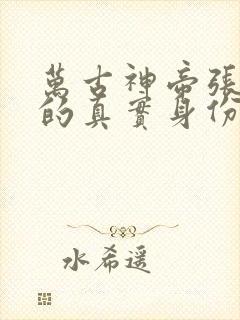 萬古神帝張
的真實身份
水希遥